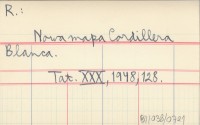 R.:
Nowa mapa Cordillera
Blanca.
Tat. XXX, 1948, 128.